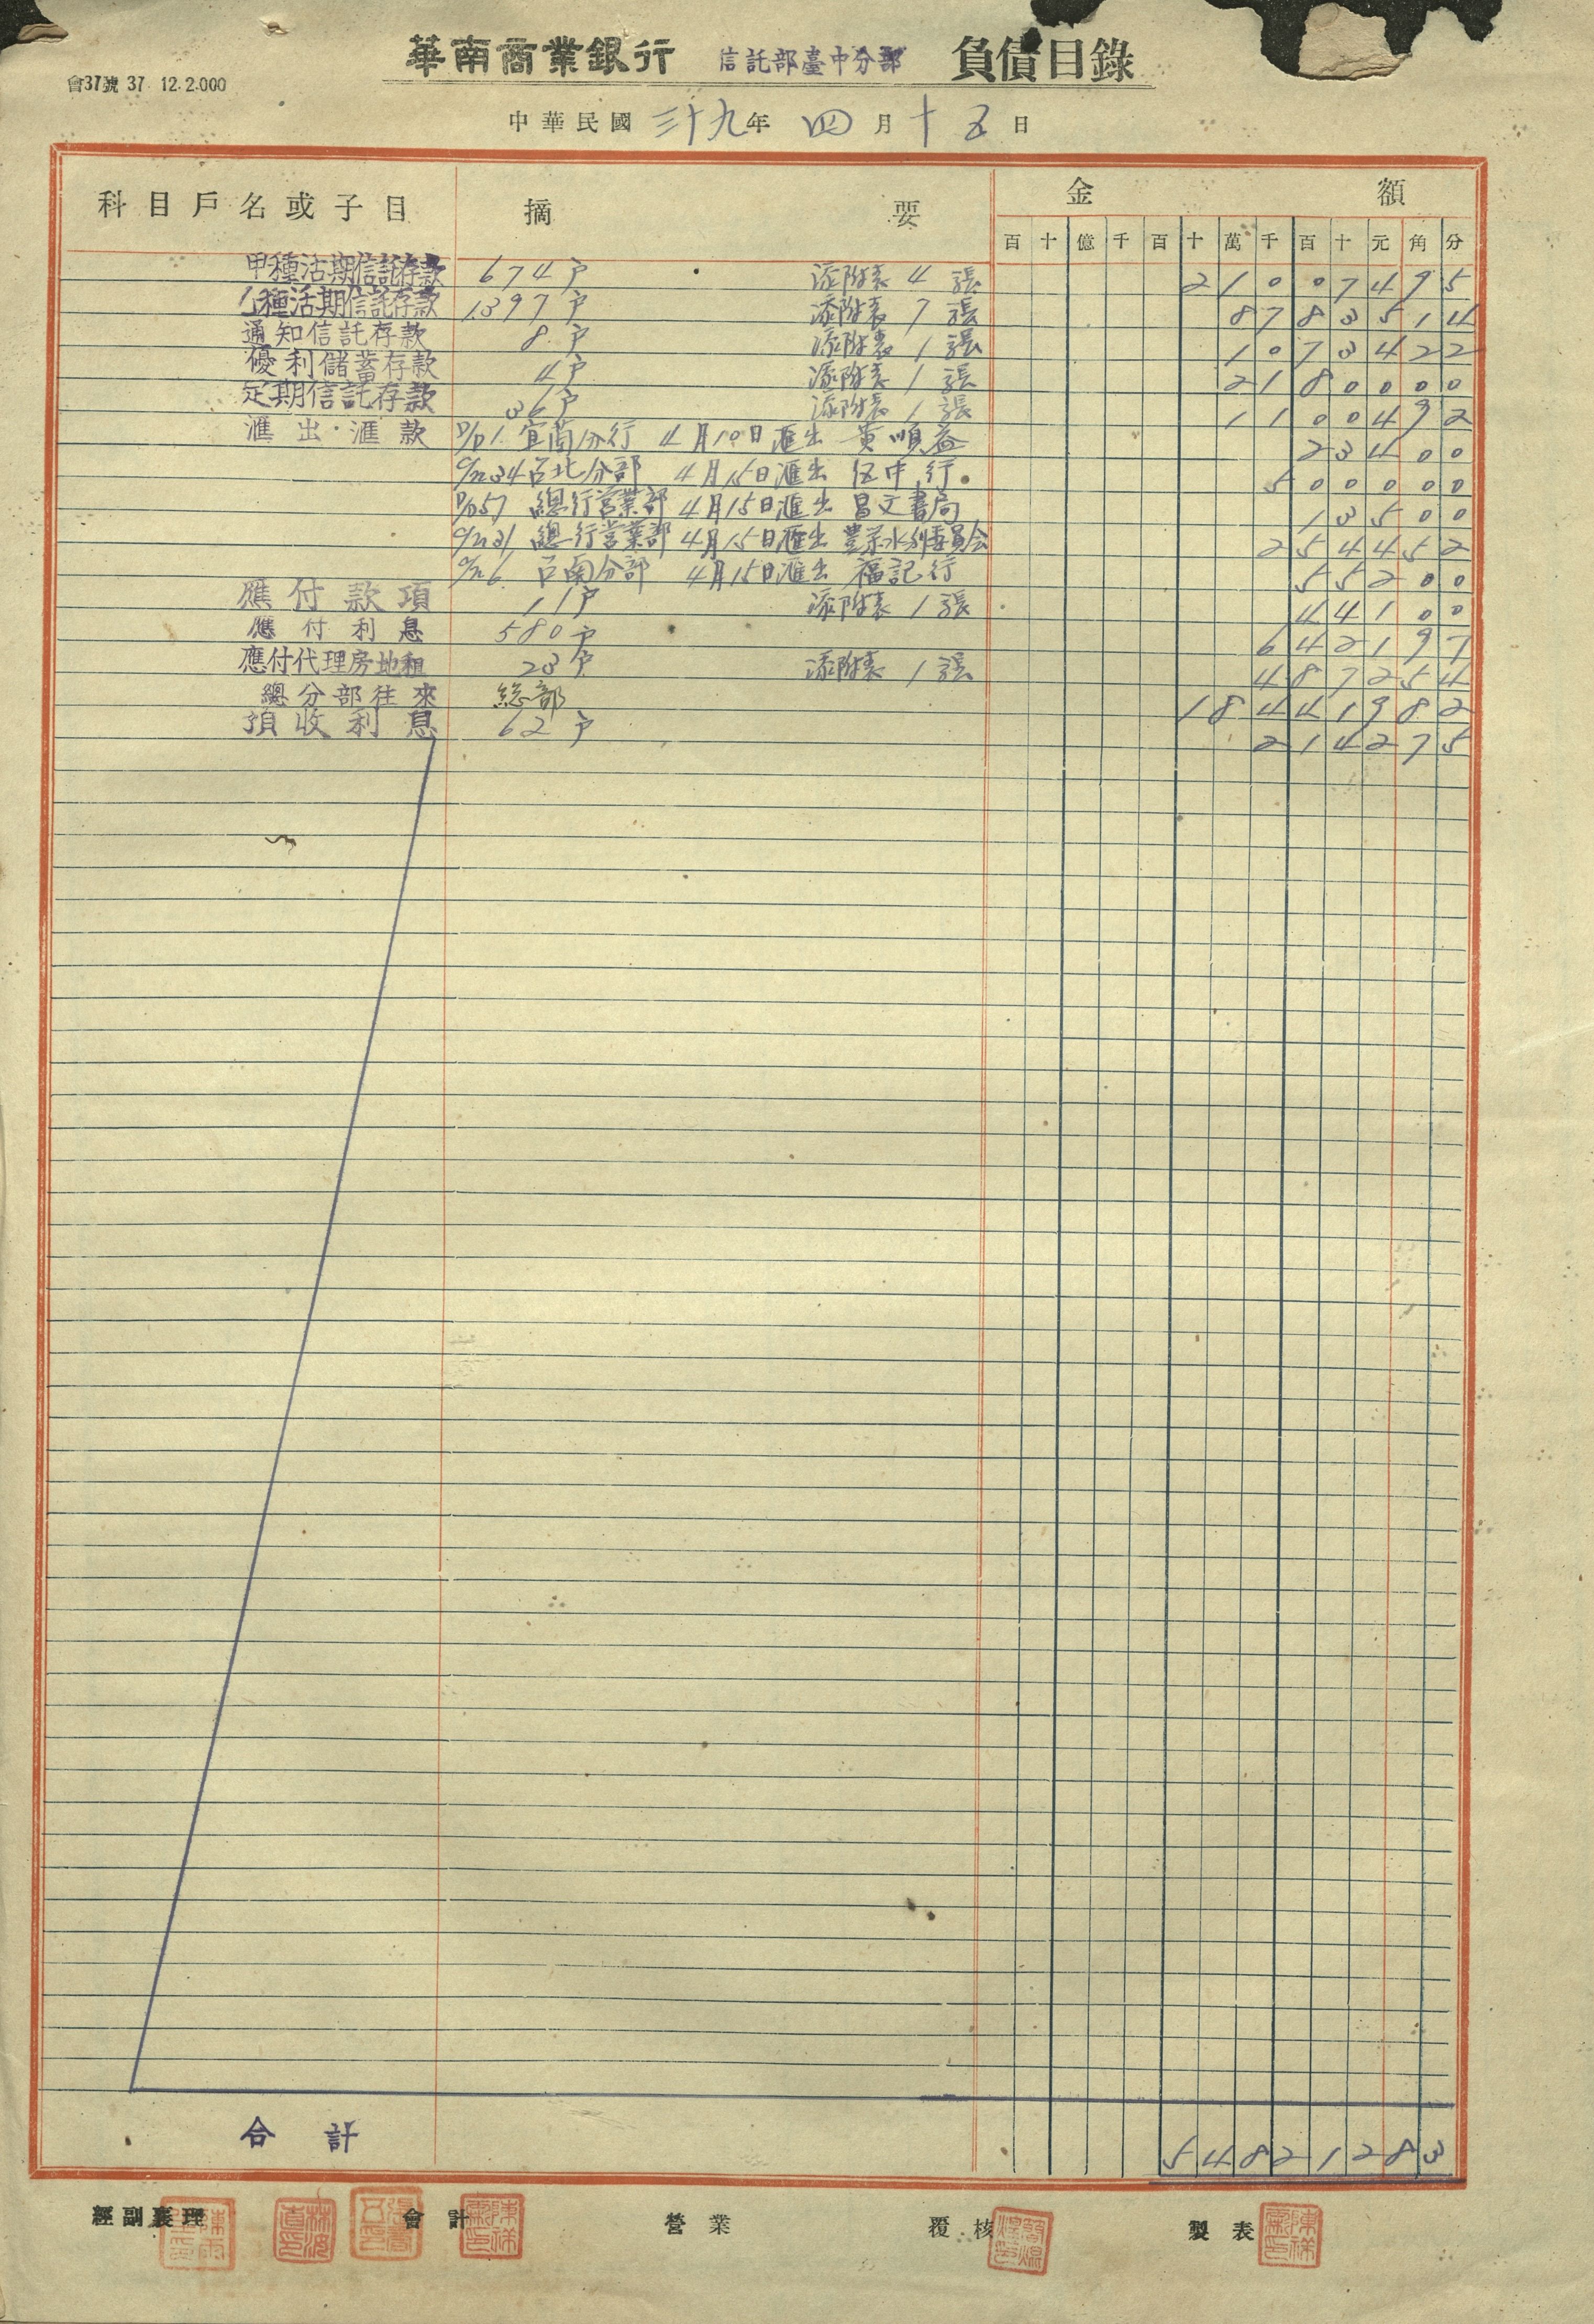 華南商業銀行 信託部臺中分部 負債目錄
會37號 37 12.2.000
中華民國 三十九年 四月十五日
科目戶名或子目 摘要 金額
百 十 億 千 百 十 萬 千 百 十 元 角 分
甲種活期信託存款 674戶 添附表 4 張 21007495
乙種活期信託存款 1397戶 添附表 7 張 8783514
通知信託存款 8戶 添附表 1 張 1073422
優利儲蓄存款 4戶 添附表 1 張 2180000
定期信託存款 36戶 添附表 1 張 1100492
滙出滙款 D/D1. 宜蘭分行 4月10日滙出 黄順益 23400
34 台北分部 4月15日滙出 伍中行 500000
D/D57 總行営業部 4月15日滙出 昌文書局 13500
31 總行営業部 4月15日滙出 豊荣水利委員会 254452
6 台南分部 4月15日滙出 福記行 55200
應付款項 11戶 添附表 1 張 44100
應付利息 580戶 642197
應付代理房地租 23戶 添附表 1 張 487254
總分部往來 総部 18441982
預收利息 62戶 214275
合計 54821283
經副襄理 會計 營業 覆核 製表